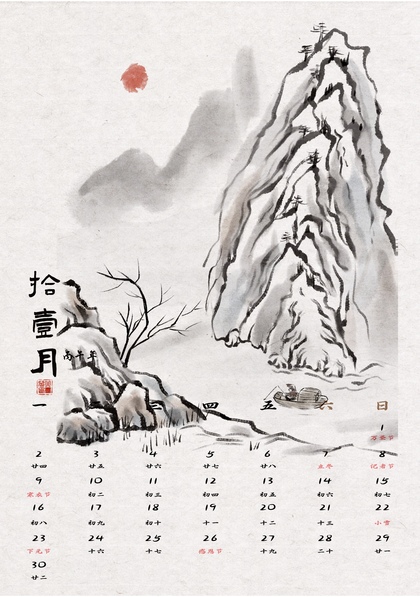 拾壹月
丙午年
一 三 四 五 六 日
1
万圣节
2 3 4 5 6 7 8
廿四 廿五 廿六 廿七 廿八 立冬 记者节
9 10 11 12 13 14 15
寒衣节 初二 初三 初四 初五 初六 初七
16 17 18 19 20 21 22
初八 初九 初十 十一 十二 十三 小雪
23 24 25 26 27 28 29
下元节 十六 十七 感恩节 十九 二十 廿一
30
廿二